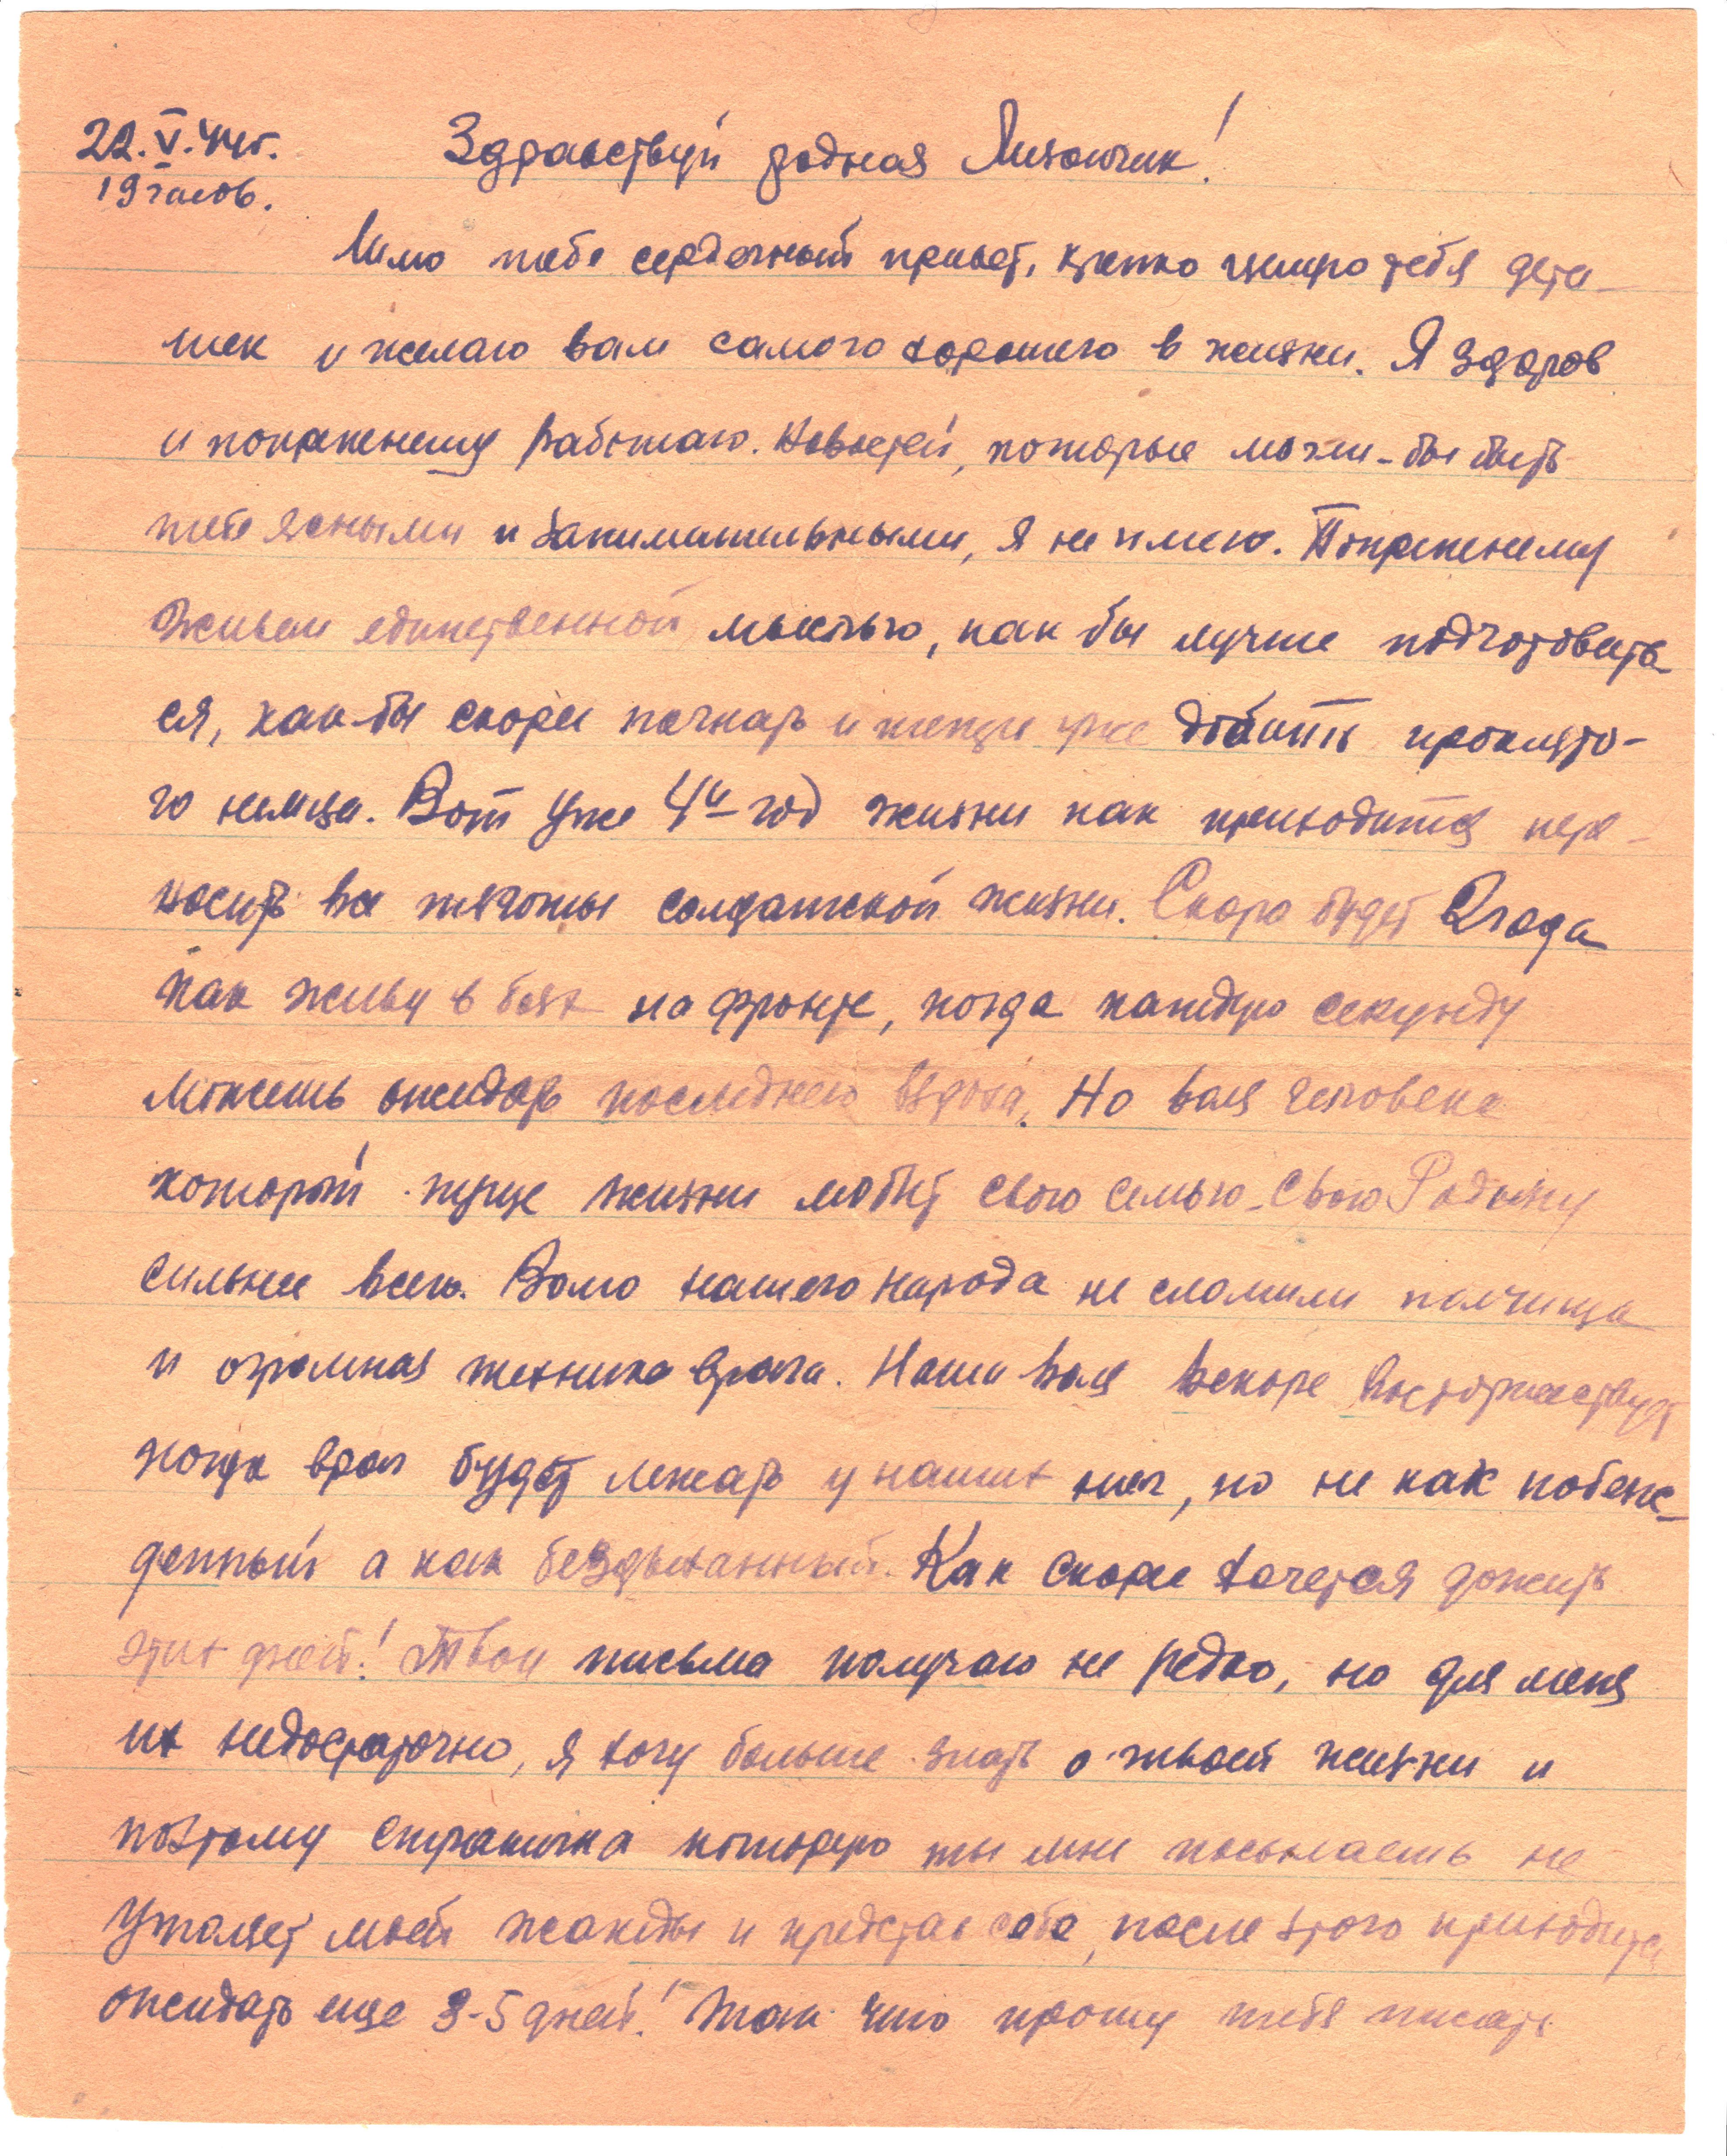 22.V.44г.
19 часов.
Здравствуй родная Лизочик!
Шлю тебе сердечный привет, крепко целую тебя дета-
шек и желаю вам самого хорошего в жизни. Я здоров
и попрежнему работаю. Новостей, которые могли-бы быть
тебе ясными и занимательными, я не имею. Попрежнему
живем единственной мыслью, как бы лучше подготовить
ся, как-бы скорее начать и теперь уже добить проклято-
го немца. Вот уже 4й год жизни как приходится пере-
носить все тяготы солдатской жизни. Скоро будет 2 года
как живу в боях на фронте, когда каждую секунду
можешь ожидать последнего вздоха. Но воля человека
который пуще жизни любит свою семью-свою Родину
сильнее всего. Волю нашего народа не сломили полчища
и огромная техника врага. Наша воля вскоре восторжествует
когда враг будет лежать у наших ног, но не как побеж-
денный а как бездыханный. Как скорее хочется дожить
этих дней! Твои письма получаю не редко, но для меня
их недостаточно, я хочу больше знать о твоей жизни и
поэтому страничка которую ты мне посылаешь не
утоляет моей жажды и представ себе, после этого приходится
ожидать еще 3-5 дней! Так что прошу тебя писать